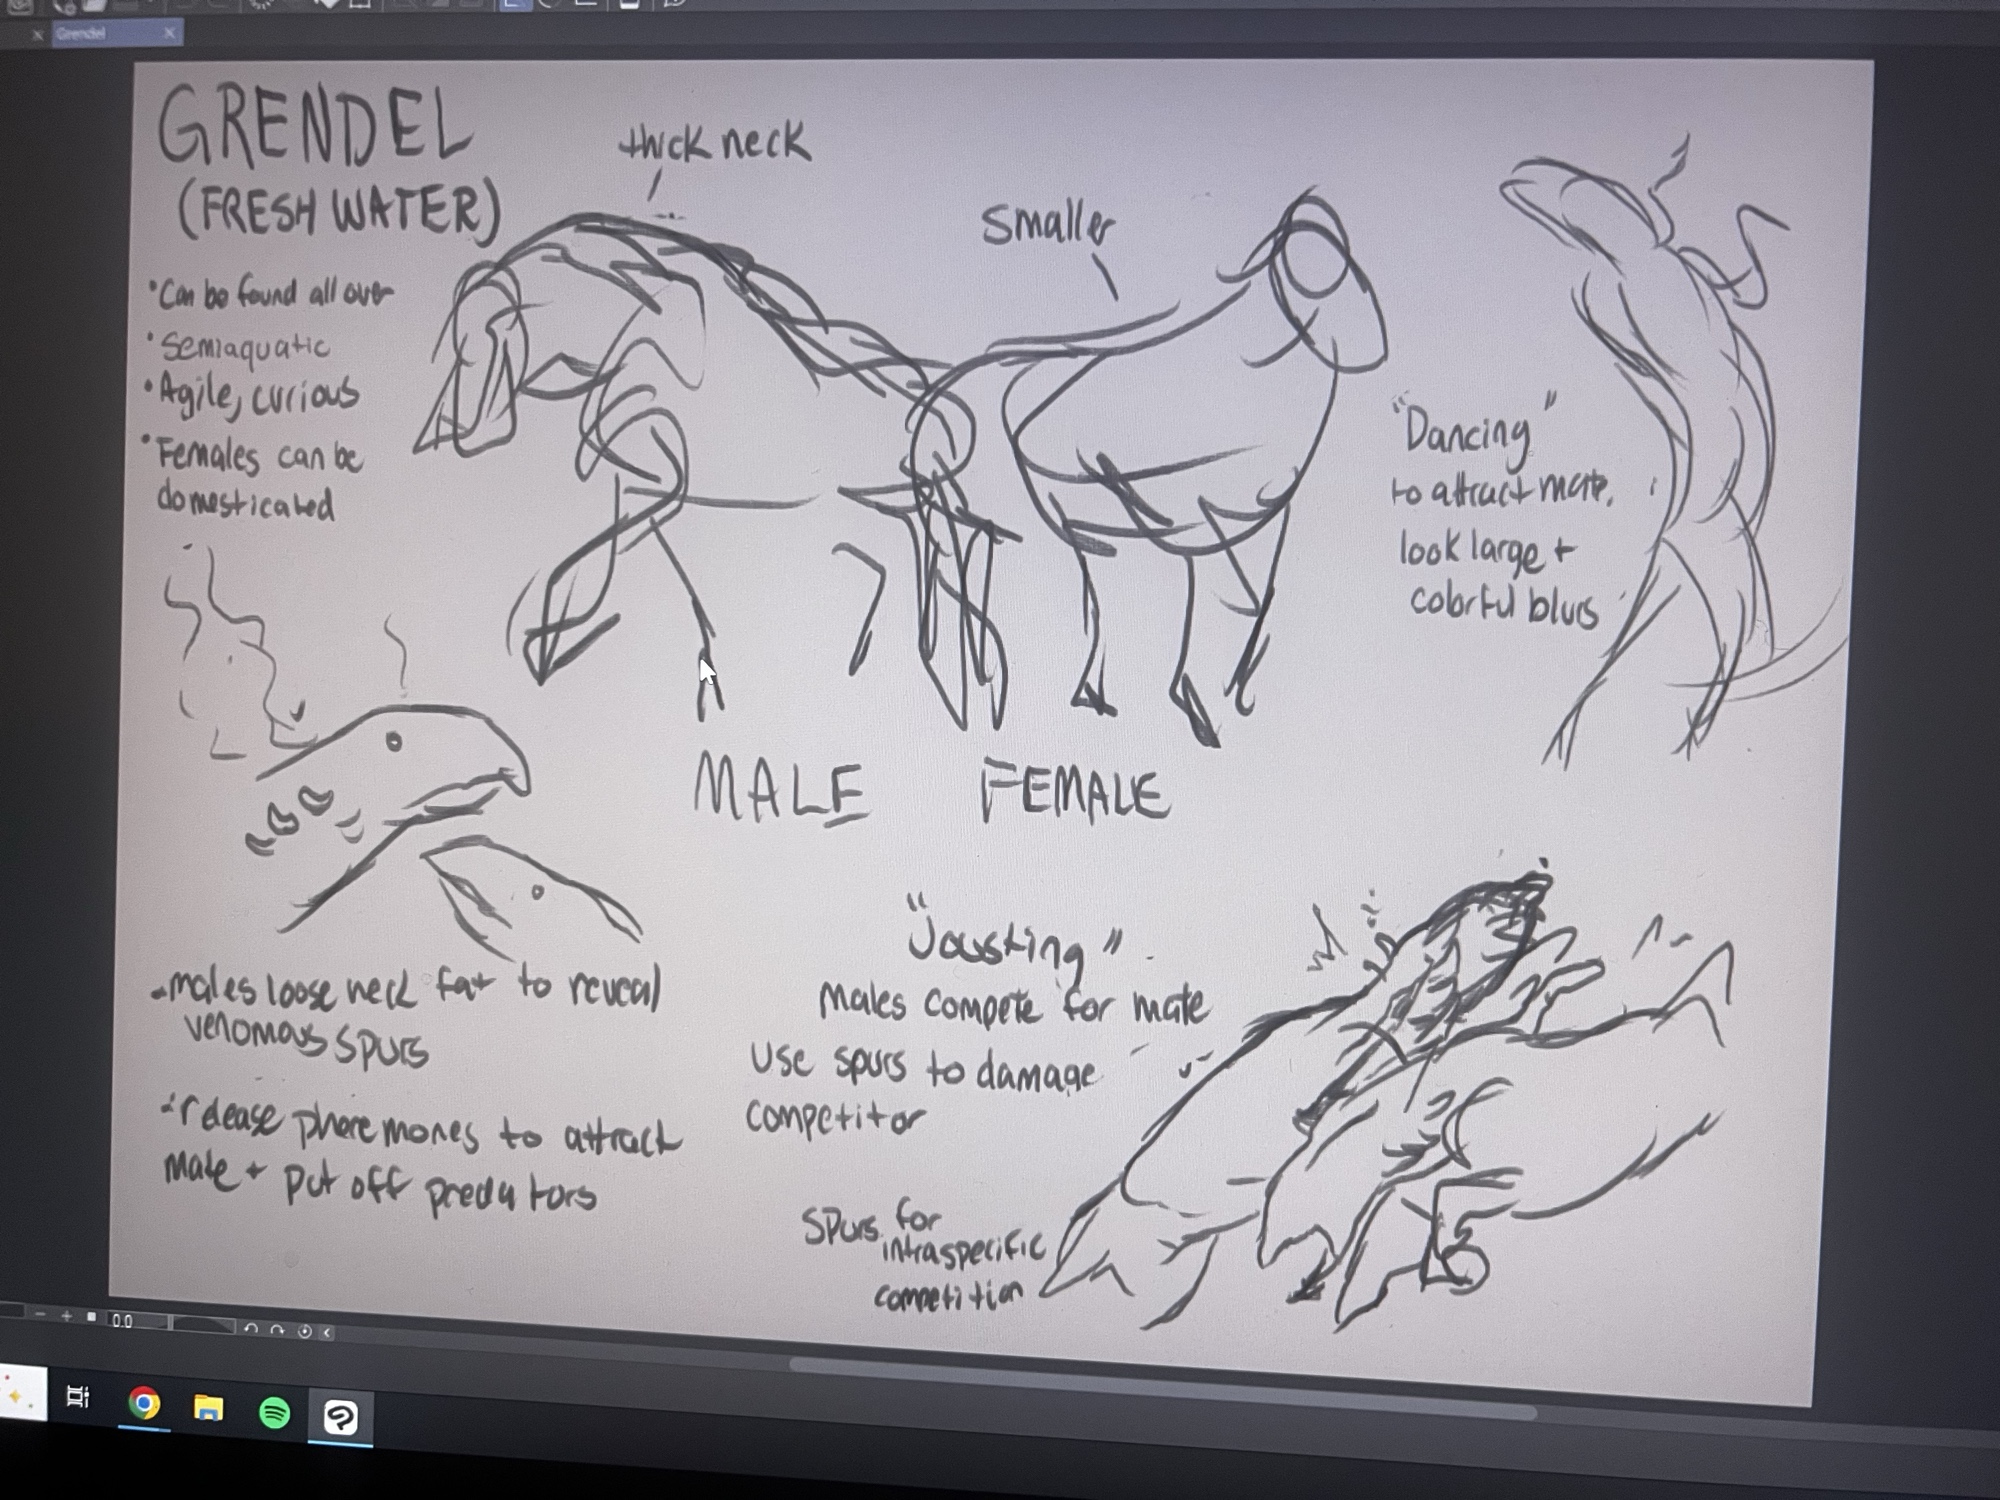 Grendel
GRENDEL
(FRESH WATER)
• Can be found all over
• Semiaquatic
• Agile, curious
• Females can be
domesticated
thick neck
smaller
"Dancing"
to attract mate,
look large +
colorful blurs
MALE
FEMALE
- males loose neck fat to reveal
venomous spurs
- release pheremones to attract
mate + put off predators
"Jousting"
Males compete for mate
Use spurs to damage
competitor
Spurs for
intraspecific
competition
0.0